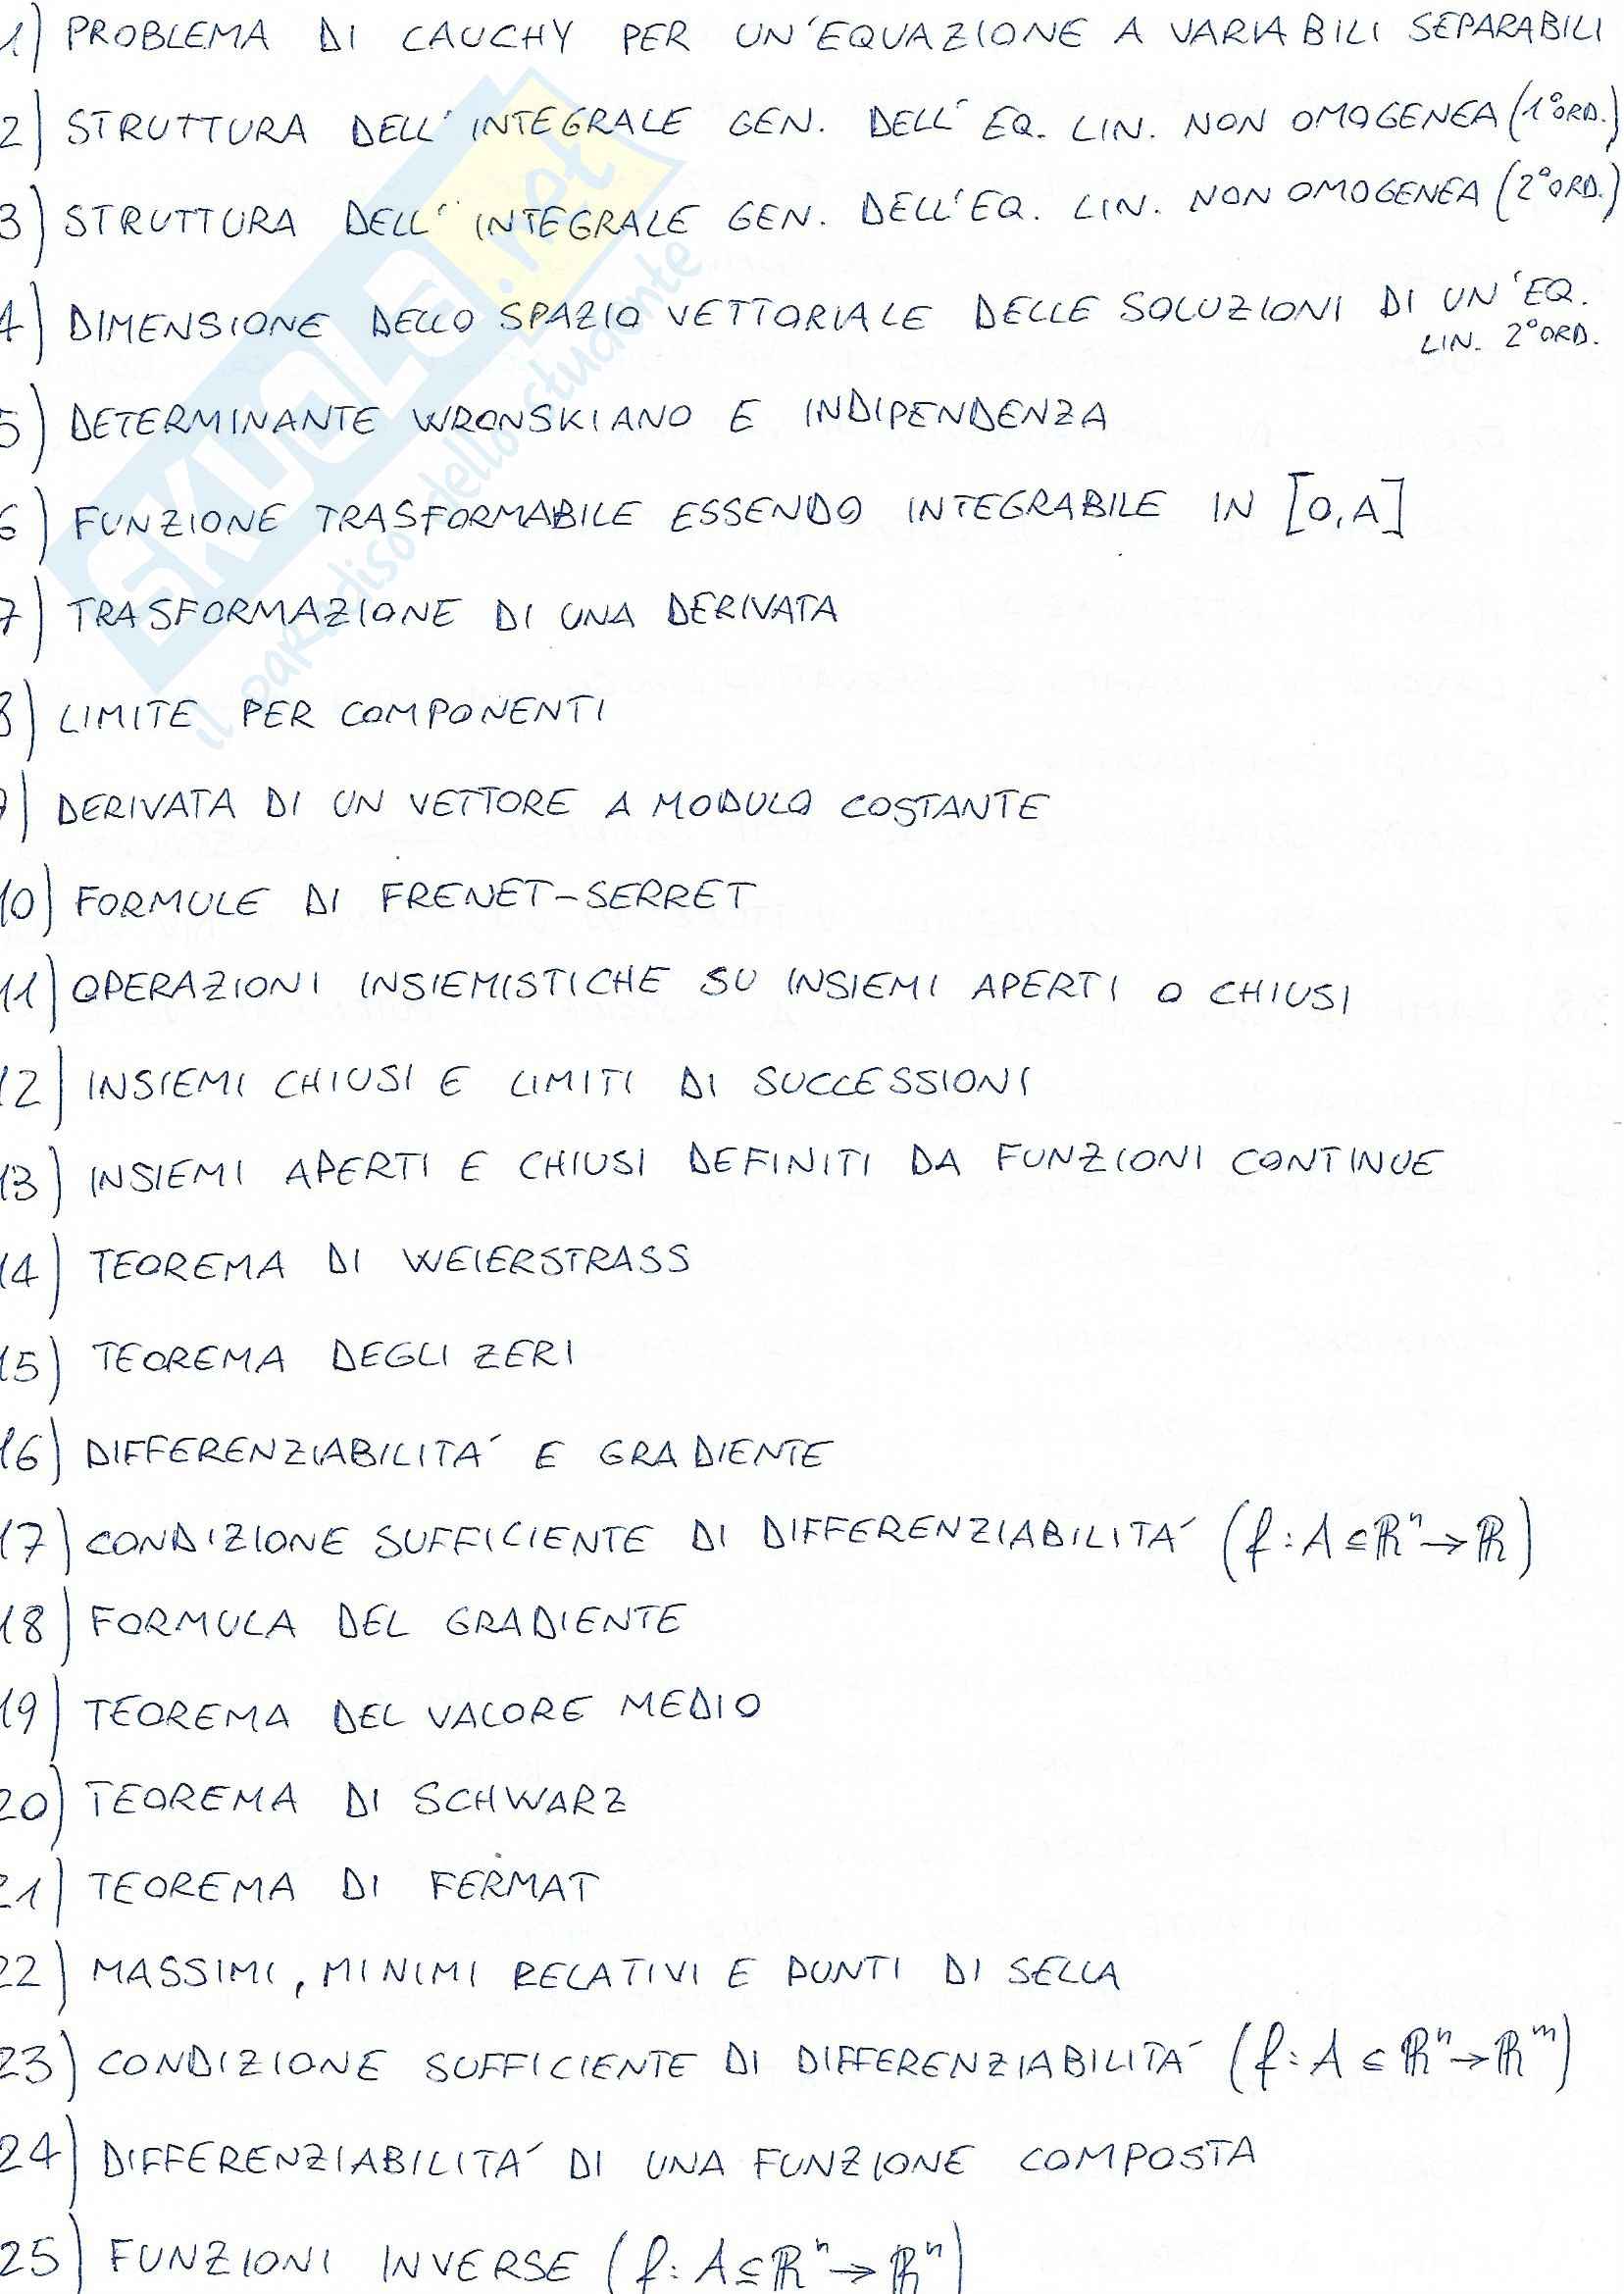 1) PROBLEMA DI CAUCHY PER UN'EQUAZIONE A VARIABILI SEPARABILI
2) STRUTTURA DELL'INTEGRALE GEN. DELL'EQ. LIN. NON OMOGENEA (1° ORD.)
3) STRUTTURA DELL'INTEGRALE GEN. DELL'EQ. LIN. NON OMOGENEA (2° ORD.)
4) DIMENSIONE DELLO SPAZIO VETTORIALE DELLE SOLUZIONI DI UN'EQ.
LIN. 2° ORD.
5) DETERMINANTE WRONSKIANO E INDIPENDENZA
6) FUNZIONE TRASFORMABILE ESSENDO INTEGRABILE IN [0,A]
7) TRASFORMAZIONE DI UNA DERIVATA
8) LIMITE PER COMPONENTI
9) DERIVATA DI UN VETTORE A MODULO COSTANTE
10) FORMULE DI FRENET-SERRET
11) OPERAZIONI INSIEMISTICHE SU INSIEMI APERTI O CHIUSI
12) INSIEMI CHIUSI E LIMITI DI SUCCESSIONI
13) INSIEMI APERTI E CHIUSI DEFINITI DA FUNZIONI CONTINUE
14) TEOREMA DI WEIERSTRASS
15) TEOREMA DEGLI ZERI
16) DIFFERENZIABILITA' E GRADIENTE
17) CONDIZIONE SUFFICIENTE DI DIFFERENZIABILITA' (f: A ⊆ ℝⁿ → ℝ)
18) FORMULA DEL GRADIENTE
19) TEOREMA DEL VALORE MEDIO
20) TEOREMA DI SCHWARZ
21) TEOREMA DI FERMAT
22) MASSIMI, MINIMI RELATIVI E PUNTI DI SELLA
23) CONDIZIONE SUFFICIENTE DI DIFFERENZIABILITA' (f: A ⊆ ℝⁿ → ℝᵐ)
24) DIFFERENZIABILITA' DI UNA FUNZIONE COMPOSTA
25) FUNZIONI INVERSE (f: A ⊆ ℝⁿ → ℝⁿ)
SKUOLA.net
il paradiso dello studente